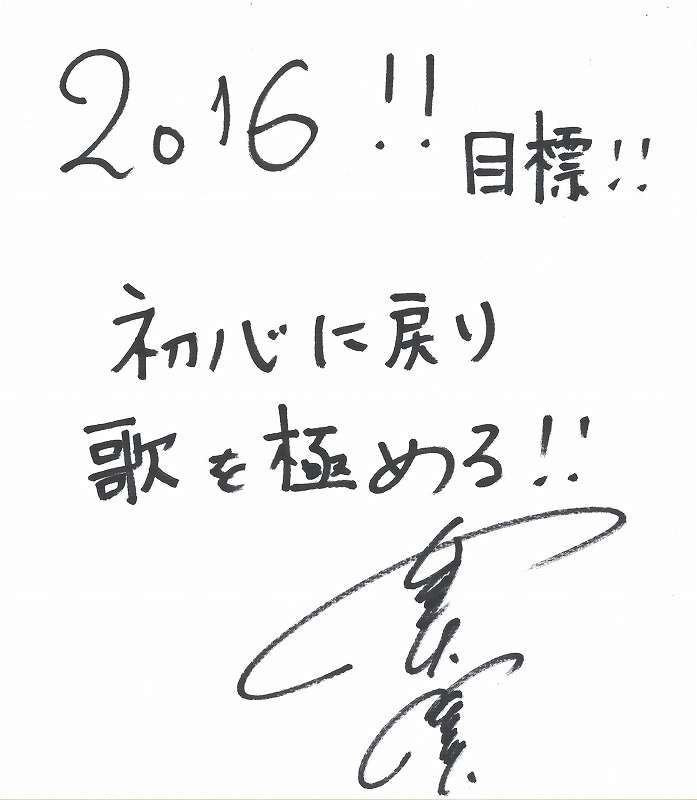 2016!! 目標!!
初心に戻り
歌を極める!!